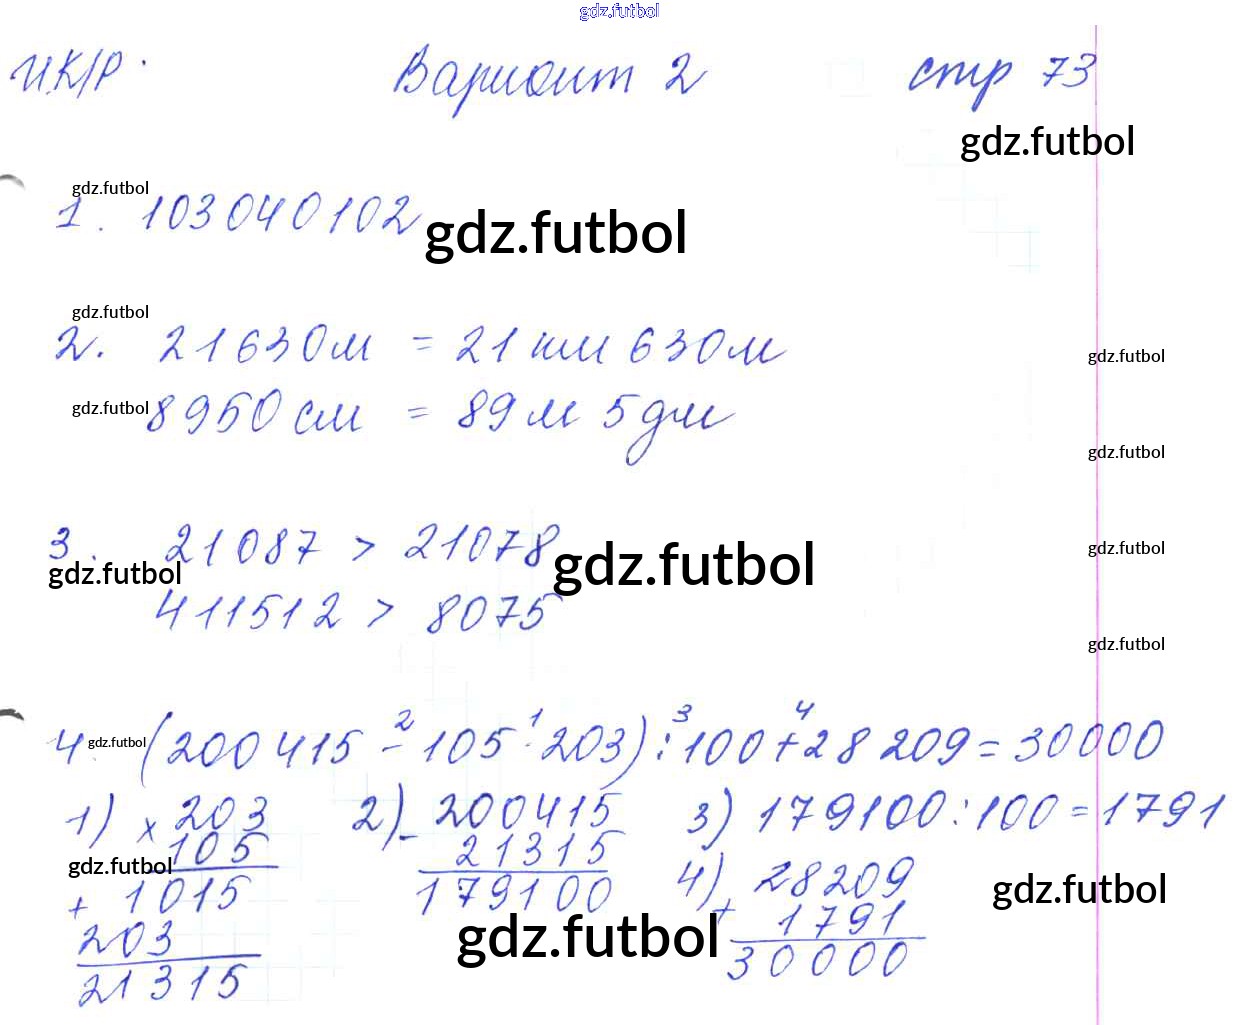 gdz.futbol
И.К/Р. Вариант 2 стр 73
gdz.futbol
gdz.futbol
1. 103 040 102 gdz.futbol
gdz.futbol
2. 21 630 м = 21 км 630 м
gdz.futbol
gdz.futbol 8950 см = 89 м 5 дм
gdz.futbol
3. 21 087 > 21078 gdz.futbol
gdz.futbol gdz.futbol
411512 > 8075
gdz.futbol
2 1 3 4
4. gdz.futbol (200 415 - 105 · 203) : 100 + 28 209 = 30000
1) × 203 2) - 200415 3) 179100 : 100 = 1791
105 21315 4) + 28209
gdz.futbol + 1015 179100 1791 gdz.futbol
203 gdz.futbol 30000
21315